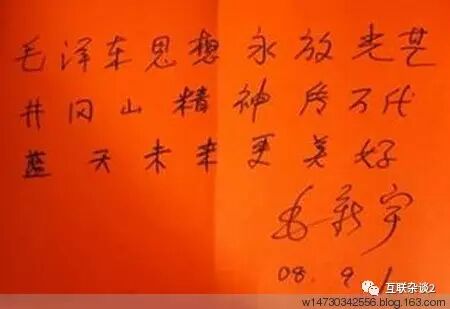 毛泽东思想永放光芒
井冈山精神传万代
蓝天未来更美好
毛新宇
08.9.1
互联杂谈2
w14730342556.blog.163.com